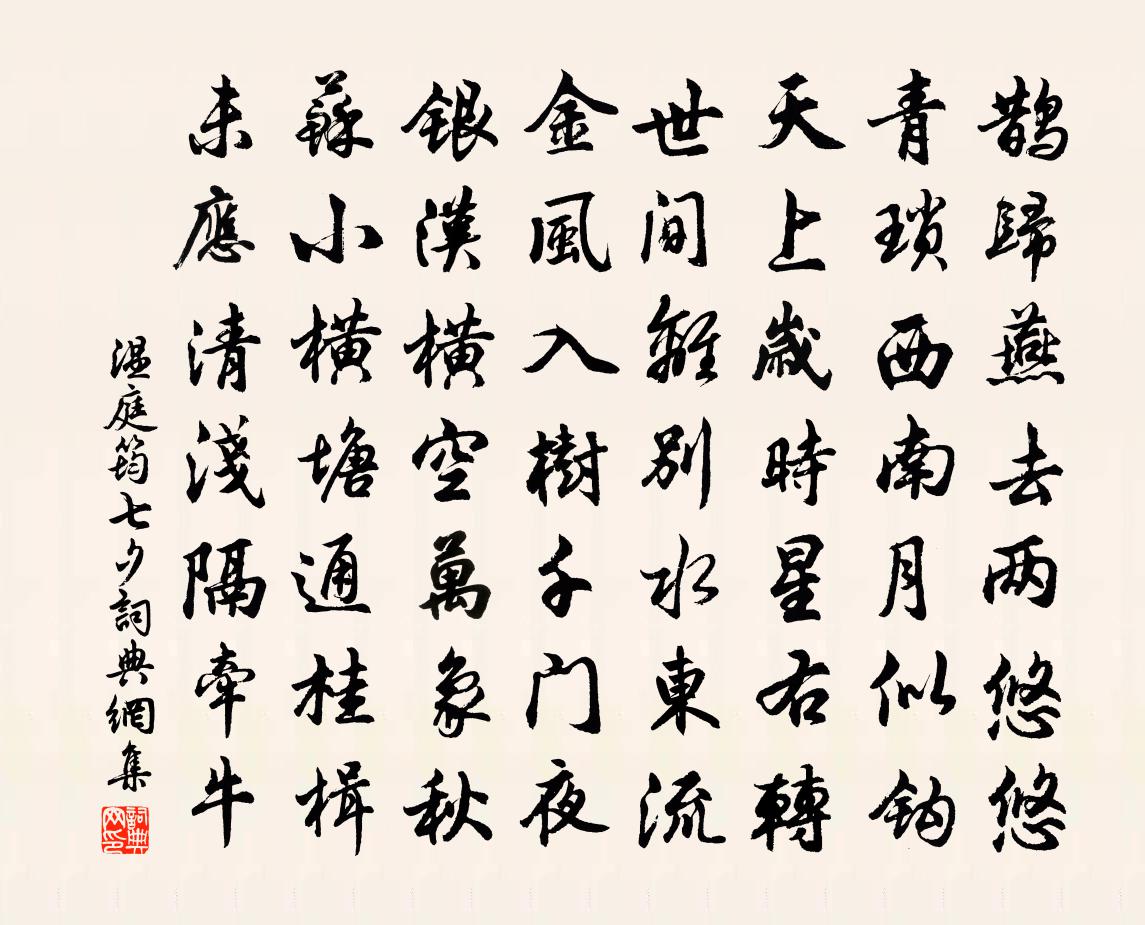 鹊歸燕去两悠悠
青瑣西南月似鈎
天上歲時星右轉
世间離别水東流
金風入樹千门夜
銀漢橫空萬象秋
蘇小橫塘通桂楫
未應清淺隔牽牛
温庭筠七夕詞典網集
詞典网印